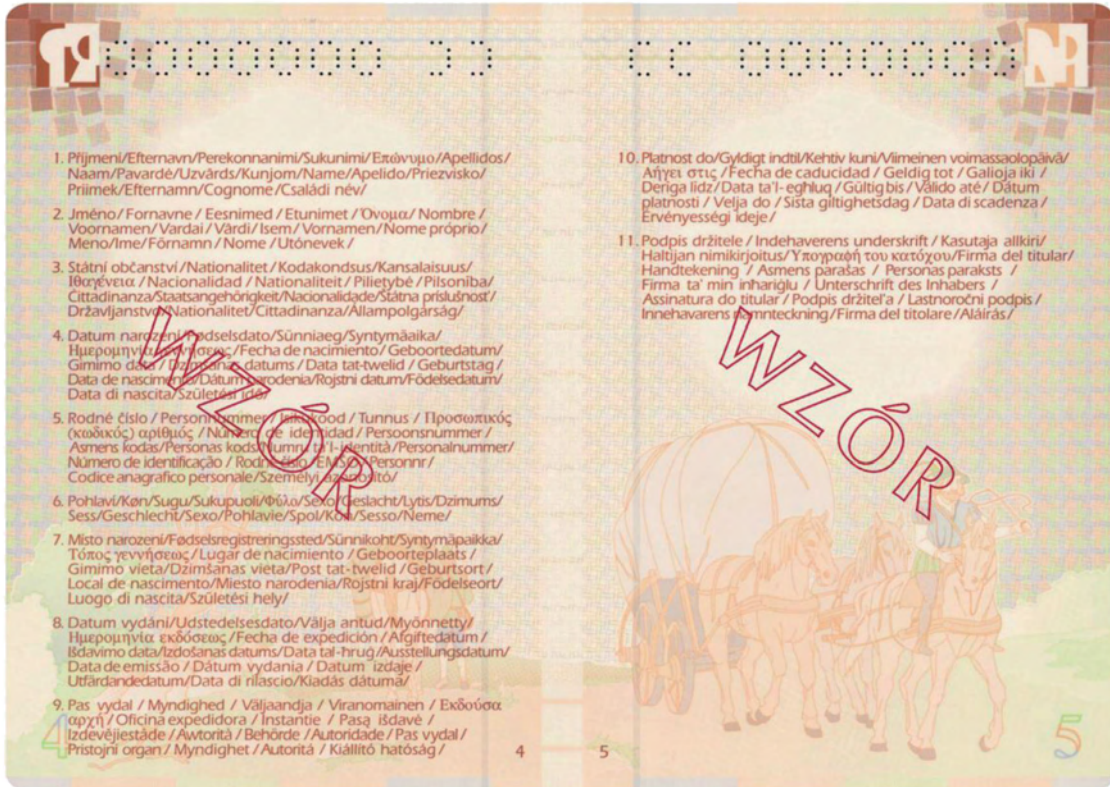 0000000 CC
1. Příjmení/Efternavn/Perekonnanimi/Sukunimi/Επώνυμο/Apellidos/
Naam/Pavardė/Uzvārds/Kunjom/Name/Apelido/Priezvisko/
Priimek/Efternamn/Cognome/Családi név/
2. Jméno/Fornavne/Eesnimed/Etunimet/Όνομα/Nombre/
Voornamen/Vardai/Vārdi/Isem/Vornamen/Nome próprio/
Meno/Ime/Förnamn/Nome/Utónevek/
3. Státní občanství/Nationalitet/Kodakondsus/Kansalaisuus/
Ιθαγένεια/Nacionalidad/Nationaliteit/Pilietybė/Pilsonība/
Cittadinanza/Staatsangehörigkeit/Nacionalidade/Štátna príslušnosť/
Državljanstvo/Nationalitet/Cittadinanza/Állampolgárság/
4. Datum narození/Fødselsdato/Sünniaeg/Syntymäaika/
Ημερομηνία γεννήσεως/Fecha de nacimiento/Geboortedatum/
Gimimo data/Dzimšanas datums/Data tat-twelid/Geburtstag/
Data de nascimento/Dátum narodenia/Rojstni datum/Födelsedatum/
Data di nascita/Születési idő/
5. Rodné číslo/Personnummer/Isikukood/Tunnus/Προσωπικός
(κωδικός) αριθμός/Número de identidad/Persoonsnummer/
Asmens kodas/Personas kods/Numru ta'l-identità/Personalnummer/
Número de identificação/Rodné číslo/EMŠO/Personnr/
Codice anagrafico personale/Személyi azonosító/
6. Pohlaví/Køn/Sugu/Sukupuoli/Φύλο/Sexo/Geslacht/Lytis/Dzimums/
Sess/Geschlecht/Sexo/Pohlavie/Spol/Kön/Sesso/Neme/
7. Místo narození/Fødselsregistreringssted/Sünnikoht/Syntymäpaikka/
Τόπος γεννήσεως/Lugar de nacimiento/Geboorteplaats/
Gimimo vieta/Dzimšanas vieta/Post tat-twelid/Geburtsort/
Local de nascimento/Miesto narodenia/Rojstni kraj/Födelseort/
Luogo di nascita/Születési hely/
8. Datum vydání/Udstedelsesdato/Välja antud/Myönnetty/
Ημερομηνία εκδόσεως/Fecha de expedición/Afgiftedatum/
Išdavimo data/Izdošanas datums/Data tal-ħruġ/Ausstellungsdatum/
Data de emissão/Dátum vydania/Datum izdaje/
Utfärdandedatum/Data di rilascio/Kiadás dátuma/
9. Pas vydal/Myndighed/Väljaandja/Viranomainen/Εκδούσα
αρχή/Oficina expedidora/Instantie/Pasą išdavė/
Izdevējiestāde/Awtorità/Behörde/Autoridade/Pas vydal/
Pristojni organ/Myndighet/Autorità/Kiállító hatóság/
4
4
WZÓR
CC 0000000
10. Platnost do/Gyldigt indtil/Kehtiv kuni/Viimeinen voimassaolopäivä/
Λήγει στις/Fecha de caducidad/Geldig tot/Galioja iki/
Derīga līdz/Data ta'l-egħluq/Gültig bis/Válido até/Dátum
platnosti/Velja do/Sista giltighetsdag/Data di scadenza/
Érvényességi ideje/
11. Podpis držitele/Indehaverens underskrift/Kasutaja allkiri/
Haltijan nimikirjoitus/Υπογραφή του κατόχου/Firma del titular/
Handtekening/Asmens parašas/Personas paraksts/
Firma ta' min inħariġlu/Unterschrift des Inhabers/
Assinatura do titular/Podpis držiteľa/Lastnoročni podpis/
Innehavarens namnteckning/Firma del titolare/Aláírás/
WZÓR
5
5